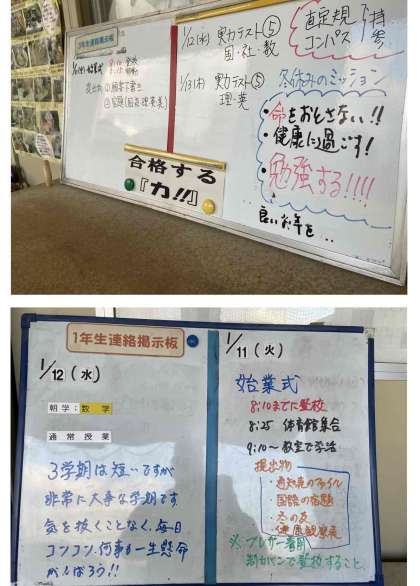 3年生連絡掲示板
1/12(水) 実力テスト⑤
国・社・数
1/13(木) 実力テスト⑤
理・英
直定規
コンパス
持参
冬休みのミッション
・命をおとさない!!
・健康に過ごす!
・勉強する!!!!
良いお年を…
合格する
『力!!』
1年生連絡掲示板
1/12(水)
朝学:数学
通常授業
3学期は短いですが
非常に大事な学期です
気を抜くことなく、毎日
コツコツ、何事も一生懸命
がんばろう!!
1/11(火)
始業式
8:10までに登校
8:25 体育館集合
9:10~ 教室で学活
提出物
・通知表のファイル
・国語の宿題
・冬の友
・健康観察表
※ブレザー着用
制カバンで登校すること。